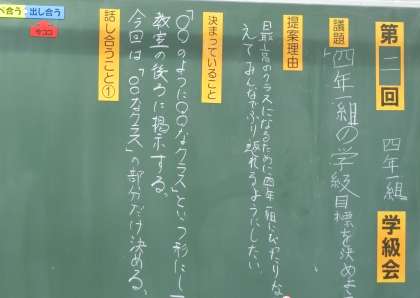 第二回 四年一組 学級会
議題
「四年一組の学級目標を決めよ
提案理由
最高のクラスになるために四年一組にぴったりな
えてみんなでふり返れるようにしたい。
決まっていること
「〇〇のように〇〇なクラス」という形にし
教室の後ろに掲示する。
今回は「〇〇なクラス」の部分だけ決める。
話し合うこと①
べ合う
出し合う
今ココ